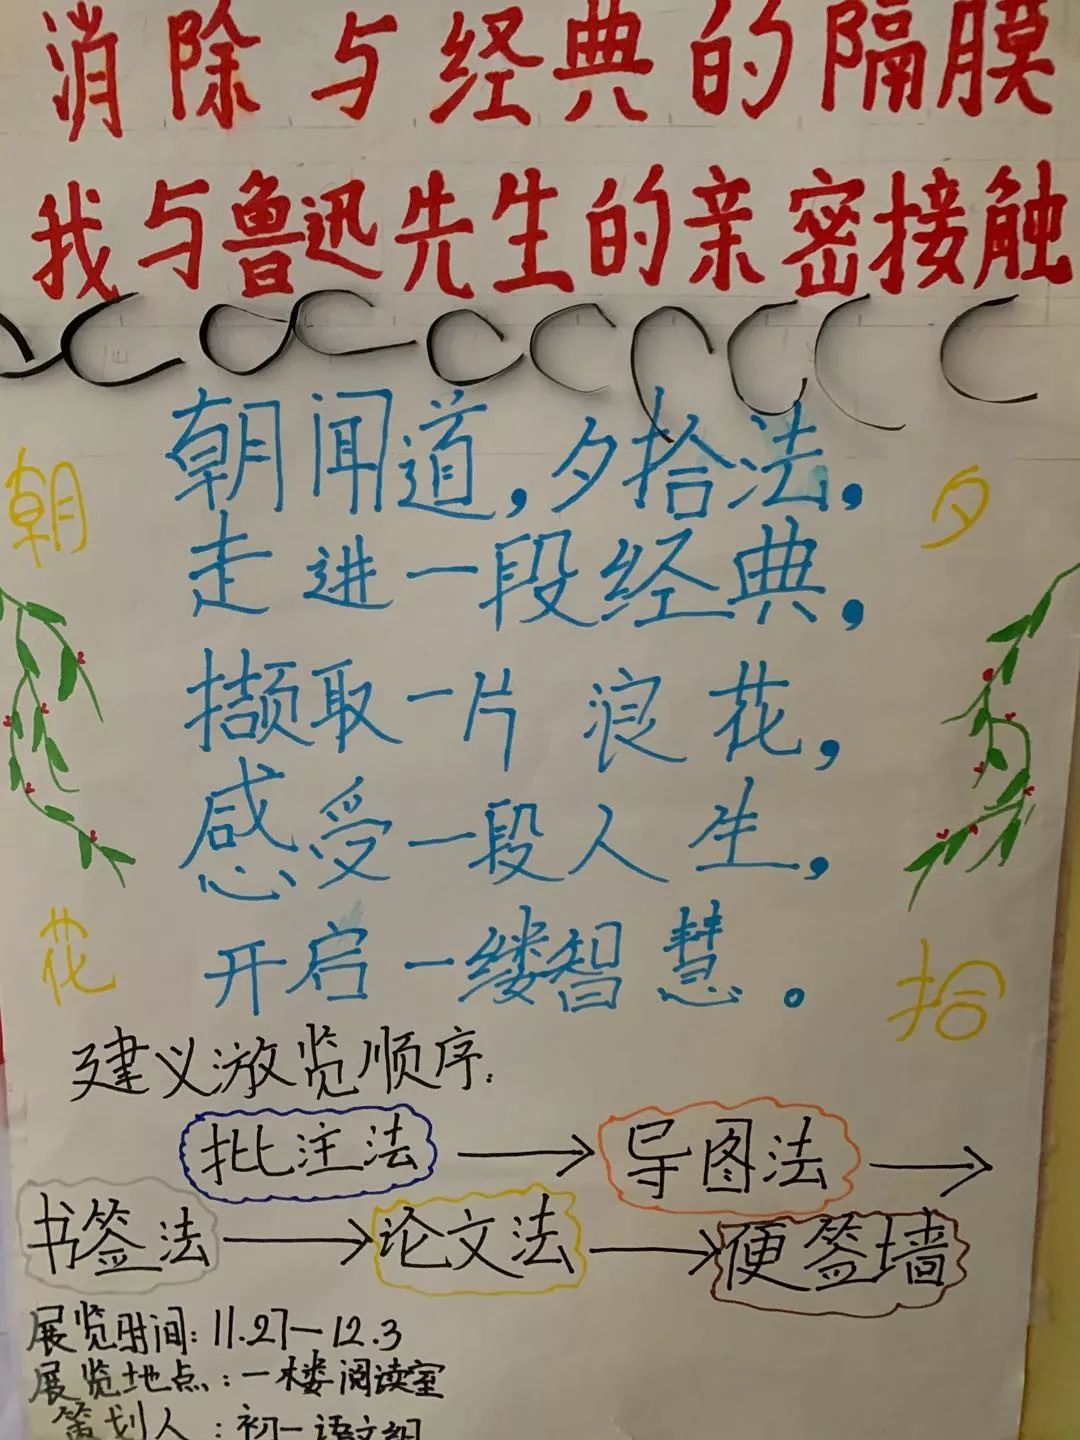 消除与经典的隔膜
我与鲁迅先生的亲密接触
朝闻道，夕拾法，
走进一段经典，
撷取一片浪花，
感受一段人生，
开启一缕智慧。
朝
花
夕
拾
建议游览顺序：
批注法
导图法
书签法
论文法
便签墙
展览时间：11.27—12.3
展览地点：一楼阅读室
策划人：初一语文组